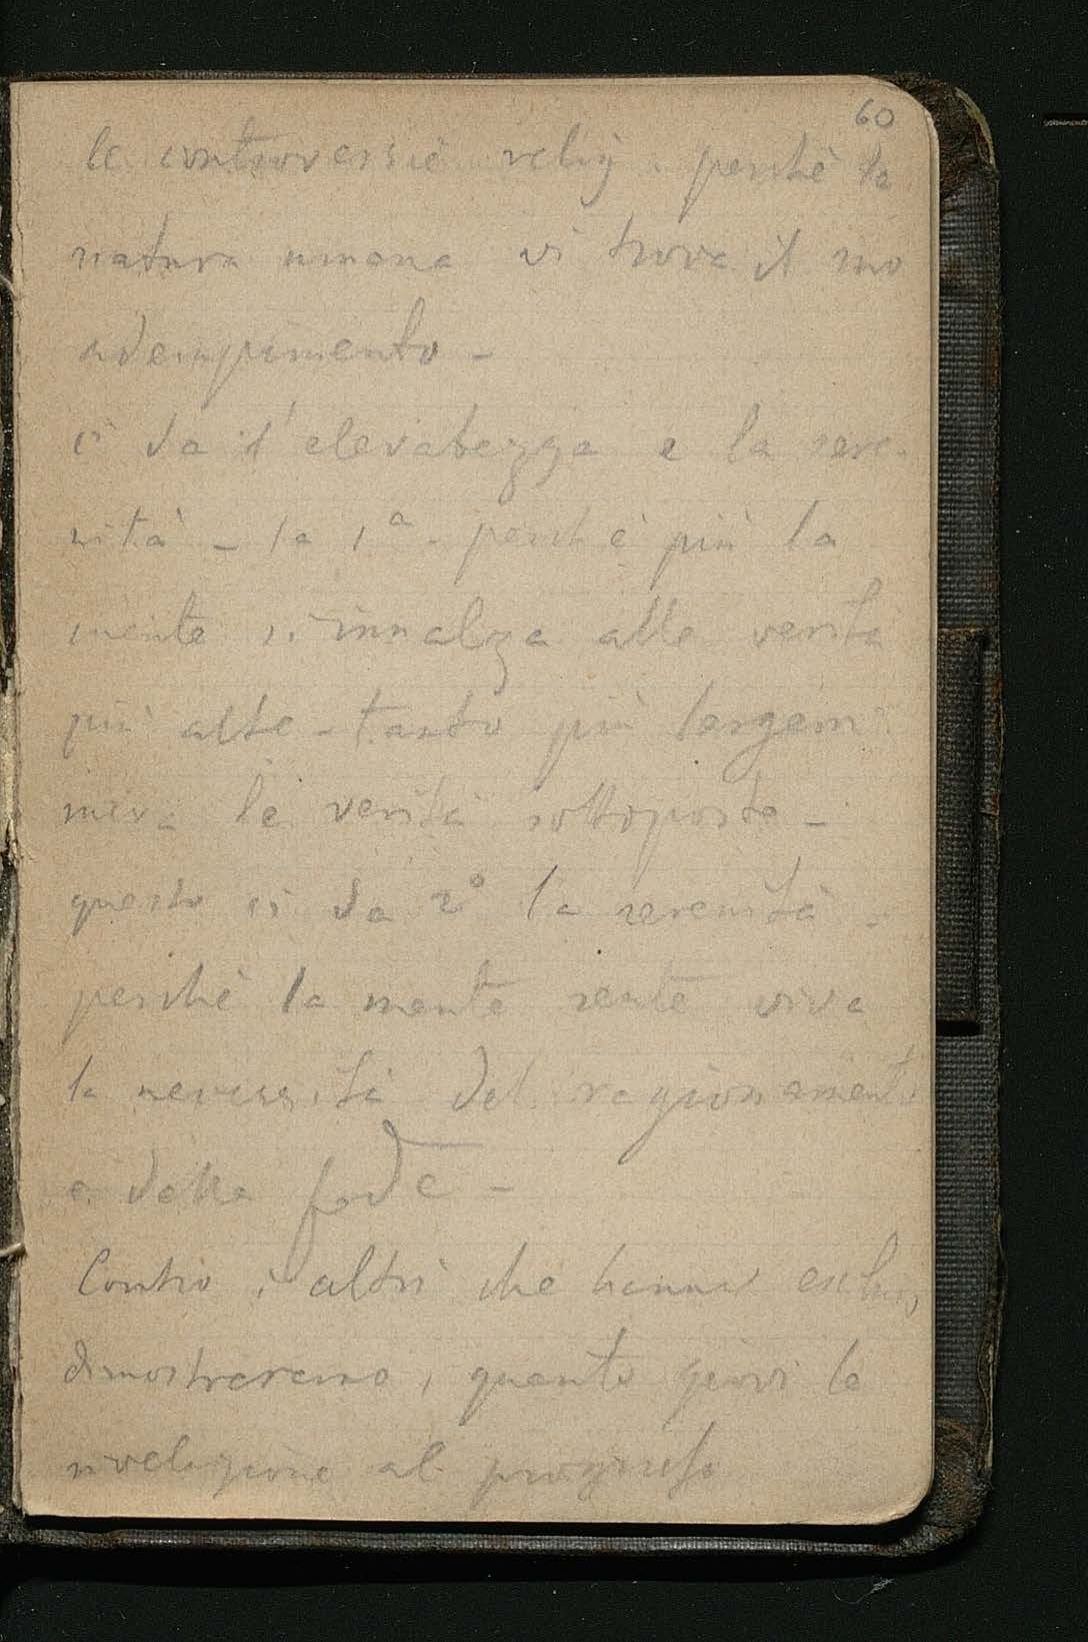 60
le controversie relig - perchè la
natura umana vi trova il suo
adempimento -
ci da l'elevatezza e la sere-
nità - la 1ª - perchè più la
mente si innalza alle verità
più alte - tanto più largam
mira le verità sottoposte -
questo ci da 2º la serenità -
perchè la mente sente viva
la necessità del ragionamento
e della fede -
Contro i altri che hanno
dimostreremo, quanto giovi la
rivelazione al progresso